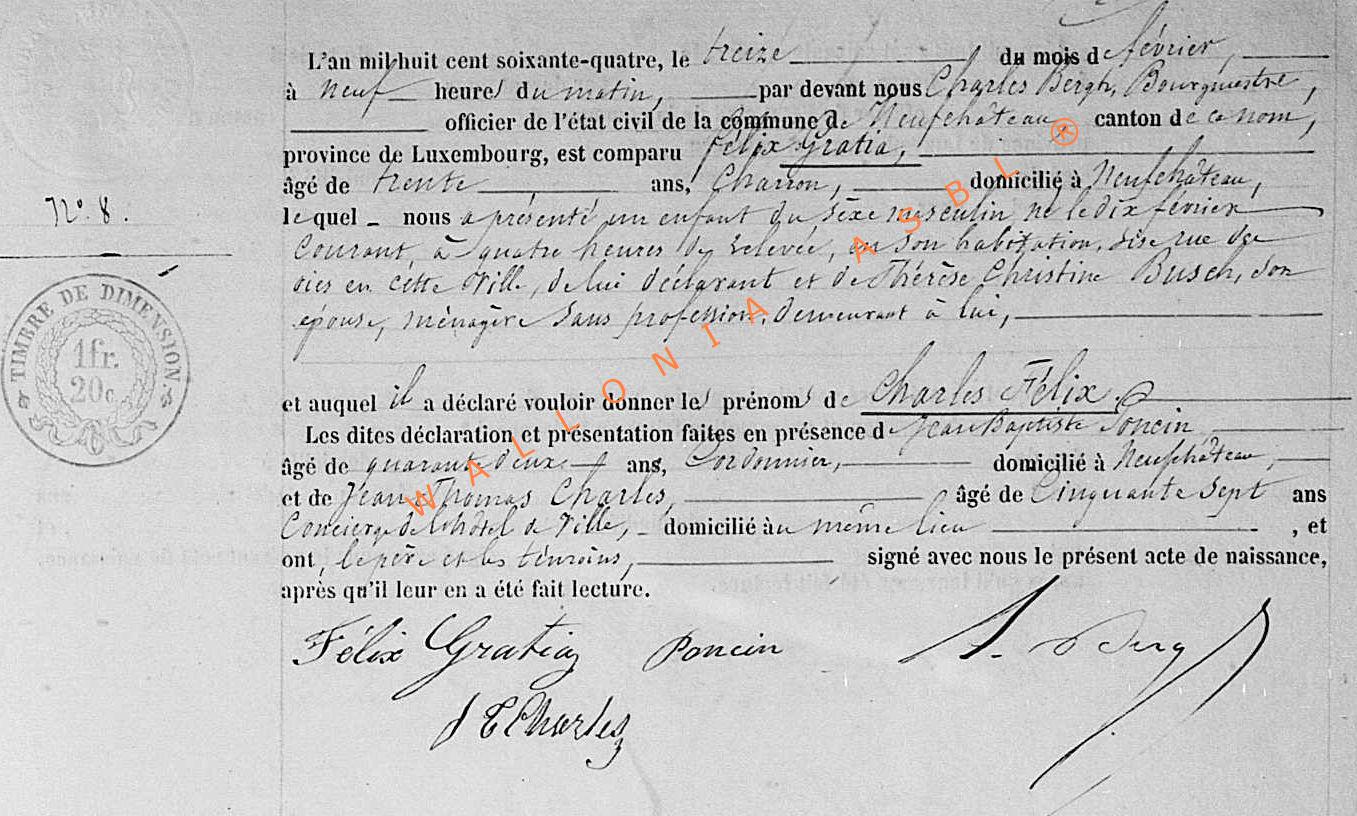 L'an mil huit cent soixante-quatre, le treize du mois de février,
à neuf heures du matin, par devant nous Charles Bergh, Bourgmestre,
officier de l'état civil de la commune de Neufchâteau canton de ce nom,
province de Luxembourg, est comparu Félix Gratia,
âgé de trente ans, Charron, domicilié à Neufchâteau,
N°. 8.
lequel nous a présenté un enfant du sexe masculin né le dix février
courant, à quatre heures de relevée, en son habitation, sise rue
en cette Ville, de lui déclarant et de Thérèse Christine Busch, son
épouse, ménagère sans profession, demeurant à lui,
TIMBRE DE DIMENSION.
1fr.
20c.
et auquel il a déclaré vouloir donner les prénoms de Charles Félix.
Les dites déclaration et présentation faites en présence de Jean Baptiste Poncin,
âgé de quarante deux ans, Cordonnier, domicilié à Neufchâteau,
et de Jean Thomas Charles, âgé de Cinquante Sept ans
Concierge de l'hôtel de Ville, domicilié au même lieu , et
ont, le père et les témoins, signé avec nous le présent acte de naissance,
après qu'il leur en a été fait lecture.
Félix Gratia Poncin
J T Charles
WALLONIA ASBL ®